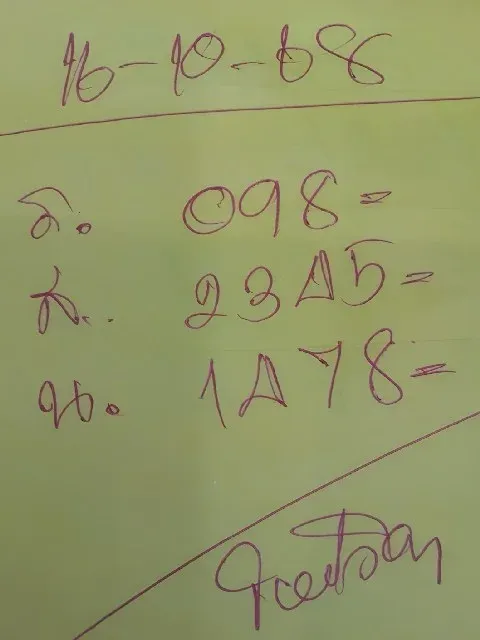 16-10-68
ร. 098=
ส. 2345=
น. 1478=